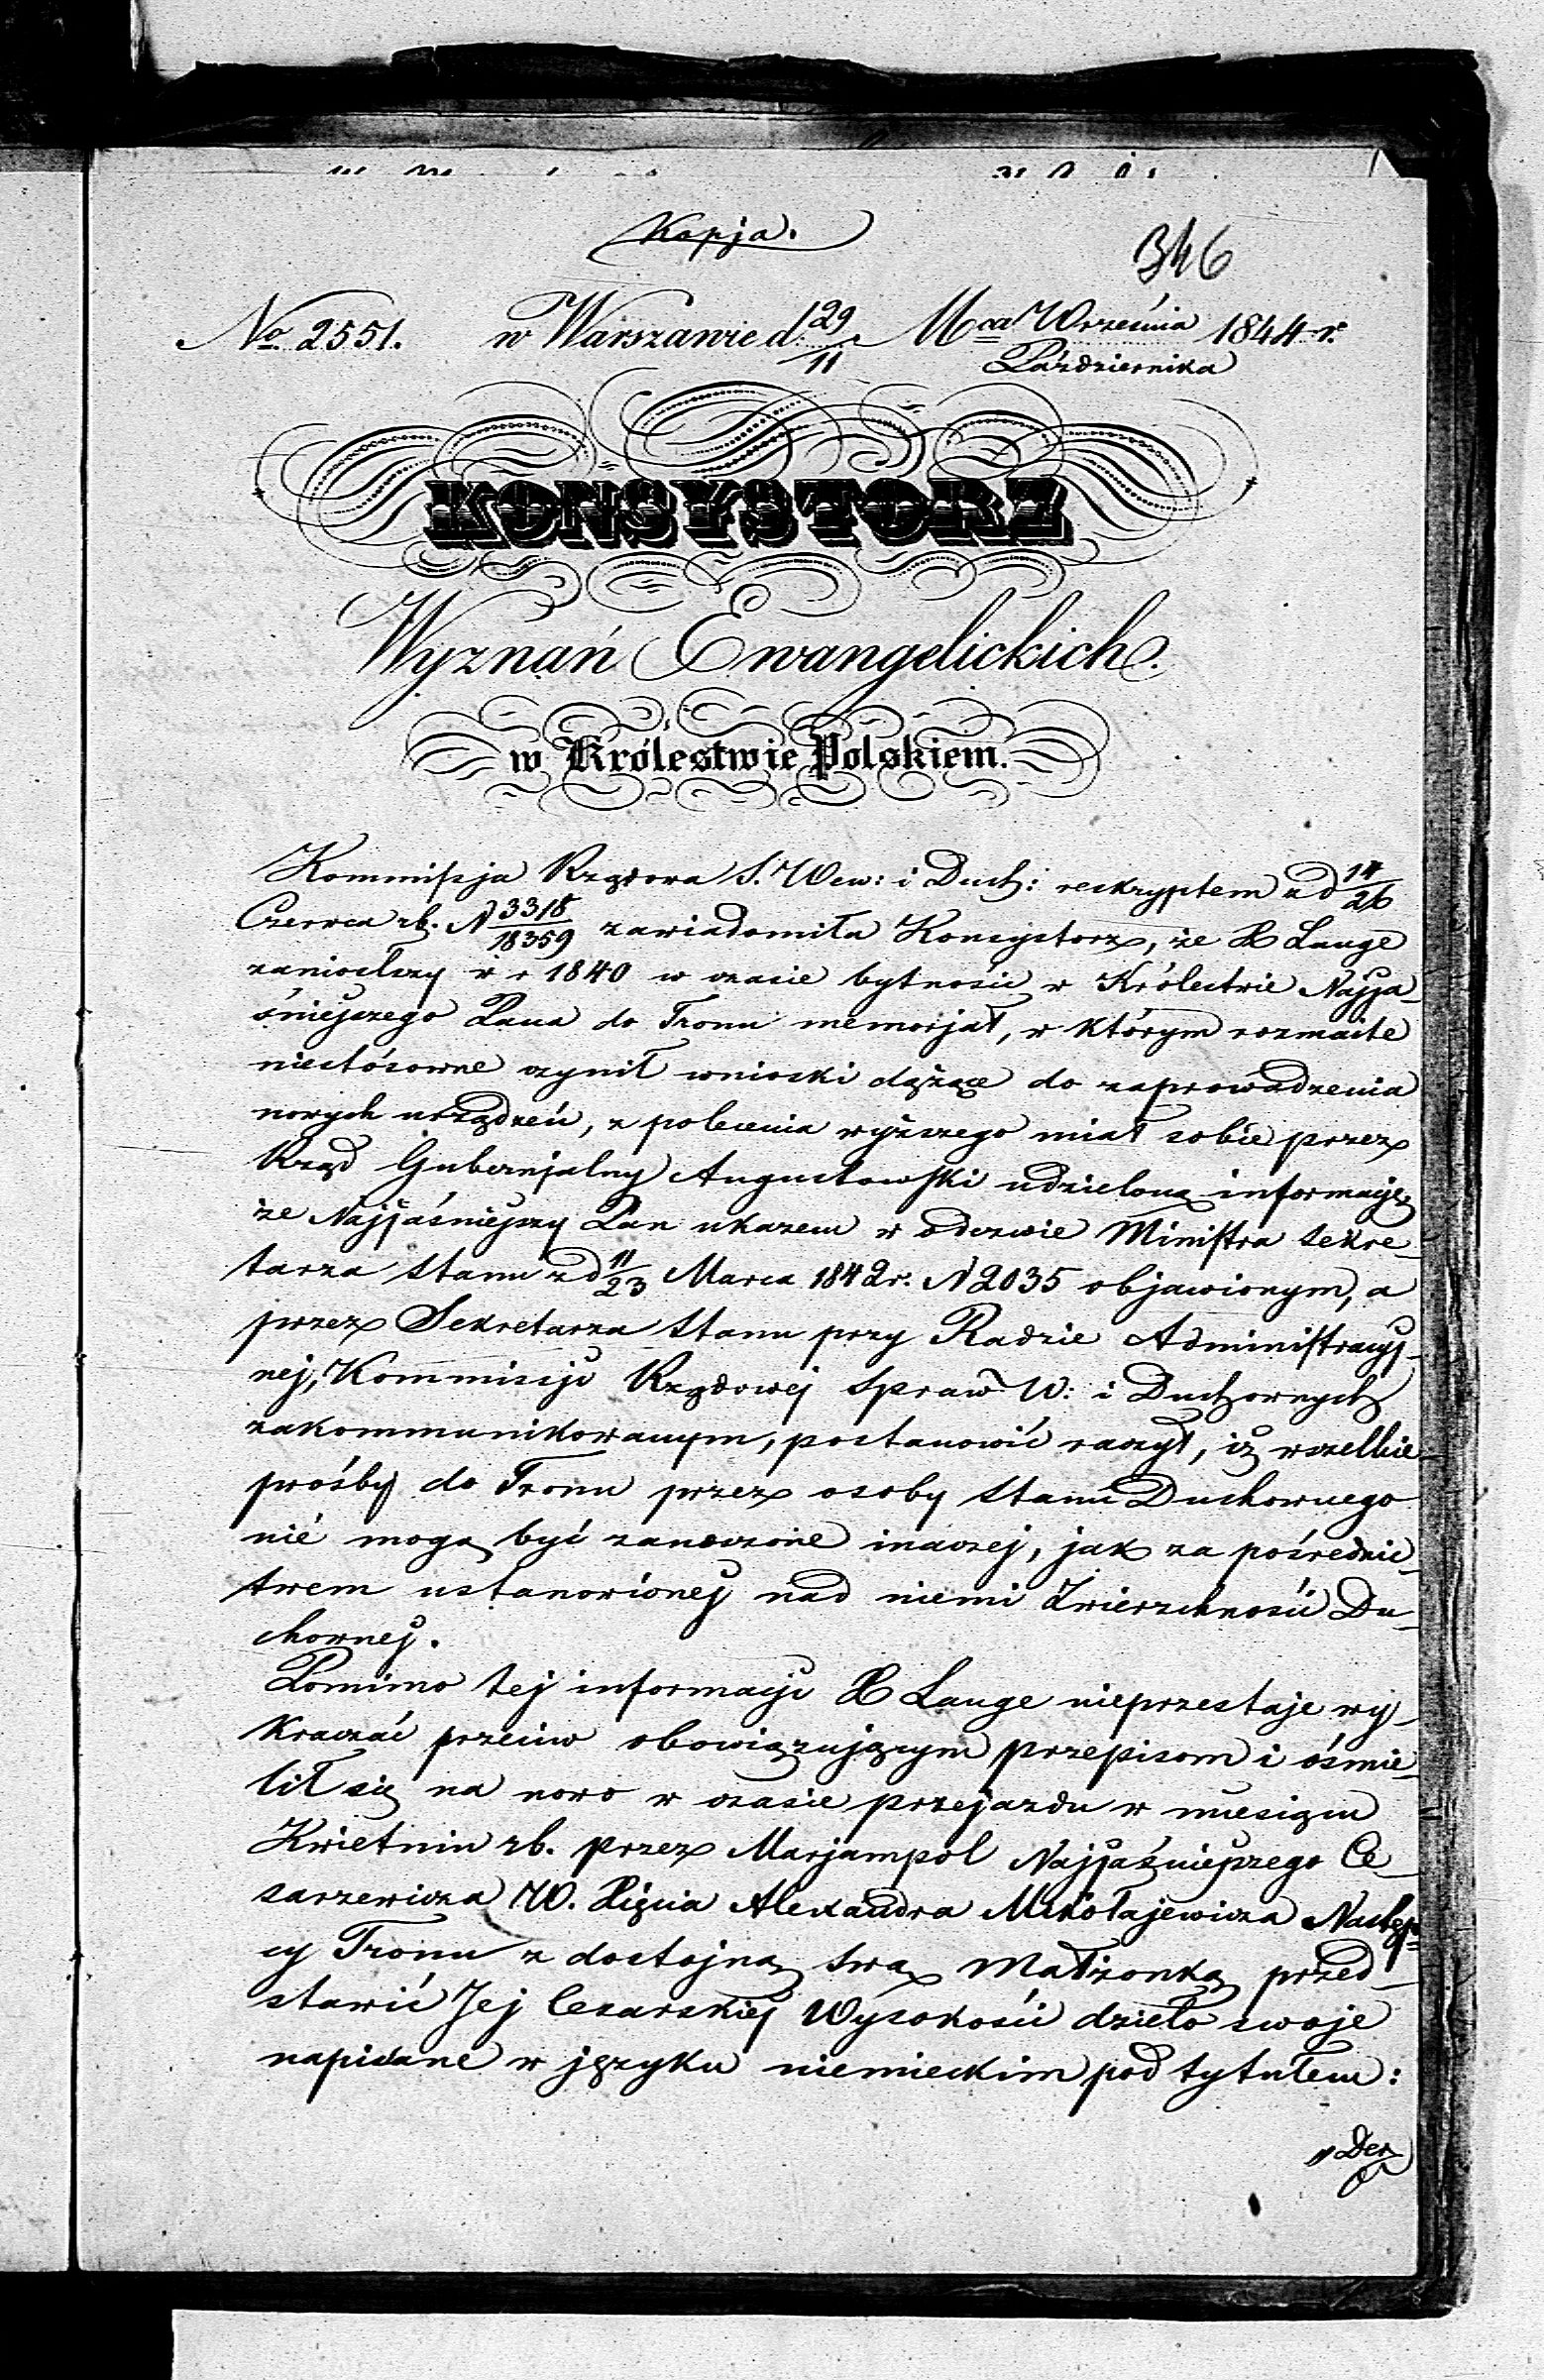 Kopja.
346
No. 2551. w Warszawie d. 29/11 Mca Września/Października 1844 r.
KONSYSTORZ
Wyznań Ewangelickich
w Królestwie Polskiem.
Kommissja Rządowa S. Wew: i Duch: reskryptem z d 14/26
Czerwca rb. N 3318/18359 zawiadomiła Konsystorz, że X Lange
zaniosłszy w r 1840 w czasie bytności w Królestwie Najja-
śniejszego Pana do Tronu memorjał, w którym rozmaite
niestósowne czynił wnioski dążące do zaprowadzenia
nowych urządzeń, z polecenia wyższego miał sobie przez
Rząd Gubernjalny Augustowski udzieloną informację
że Najjaśniejszy Pan ukazem w odezwie Ministra Sekre-
tarza Stanu z d 11/23 Marca 1842 r. N 2035 objawionym, a
przez Sekretarza Stanu przy Radzie Administracyj-
nej, Kommissji Rządowej Spraw W: i Duchownych
zakommunikowanym, postanowić raczył, iż wszelkie
prośby do Tronu przez osoby Stanu Duchownego
nie mogą być zanoszone inaczej, jak za pośrednic-
twem ustanowionej nad niemi Zwierzchności Du-
chownej.
Pomimo tej informacji X Lange nieprzestaje wy-
kraczać przeciw obowiązującym przepisom i ośmie-
lił się na nowo w czasie przejazdu w miesiącu
Kwietniu rb. przez Marjampol Najjaśniejszego Ce-
sarzewicza W. Xięcia Alexandra Mikołajewicza Następ-
cy Tronu z dostojną swą Małżonką przed-
stawić Jej Cesarskiej Wysokości dzieło swoje
napisane w języku niemieckim pod tytułem:
"Der